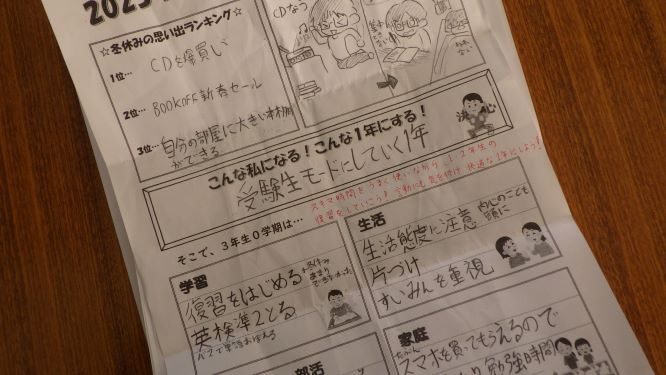 2023
☆冬休みの思い出ランキング☆
1位… CDを爆買い
2位… BOOKOFF新春セール
3位… 自分の部屋に大きい本棚
ができる
CDなう
こんな私になる！こんな1年にする！
受験生モードにしていく1年
決心
スキマ時間をうまく使いながら、1、2年生の
復習をしていこう！言動にも気を付け快適な1年にしよう！
そこで、3年生0学期は…
学習
復習をはじめる
英検準2とる
生活
生活態度に注意
片づけ
すいみんを重視
内心のことも
頭に
部活
家庭
スマホを買ってもらえるので
勉強時間